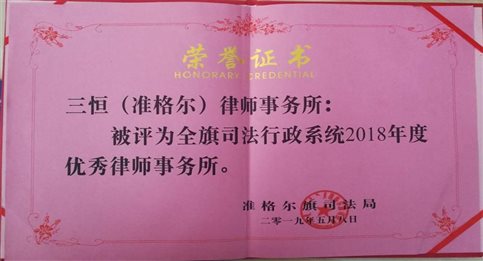 荣誉证书
HONORARY CREDENTIAL
三恒（准格尔）律师事务所：
被评为全旗司法行政系统2018年度
优秀律师事务所。
准格尔旗司法局
二零一九年五月八日